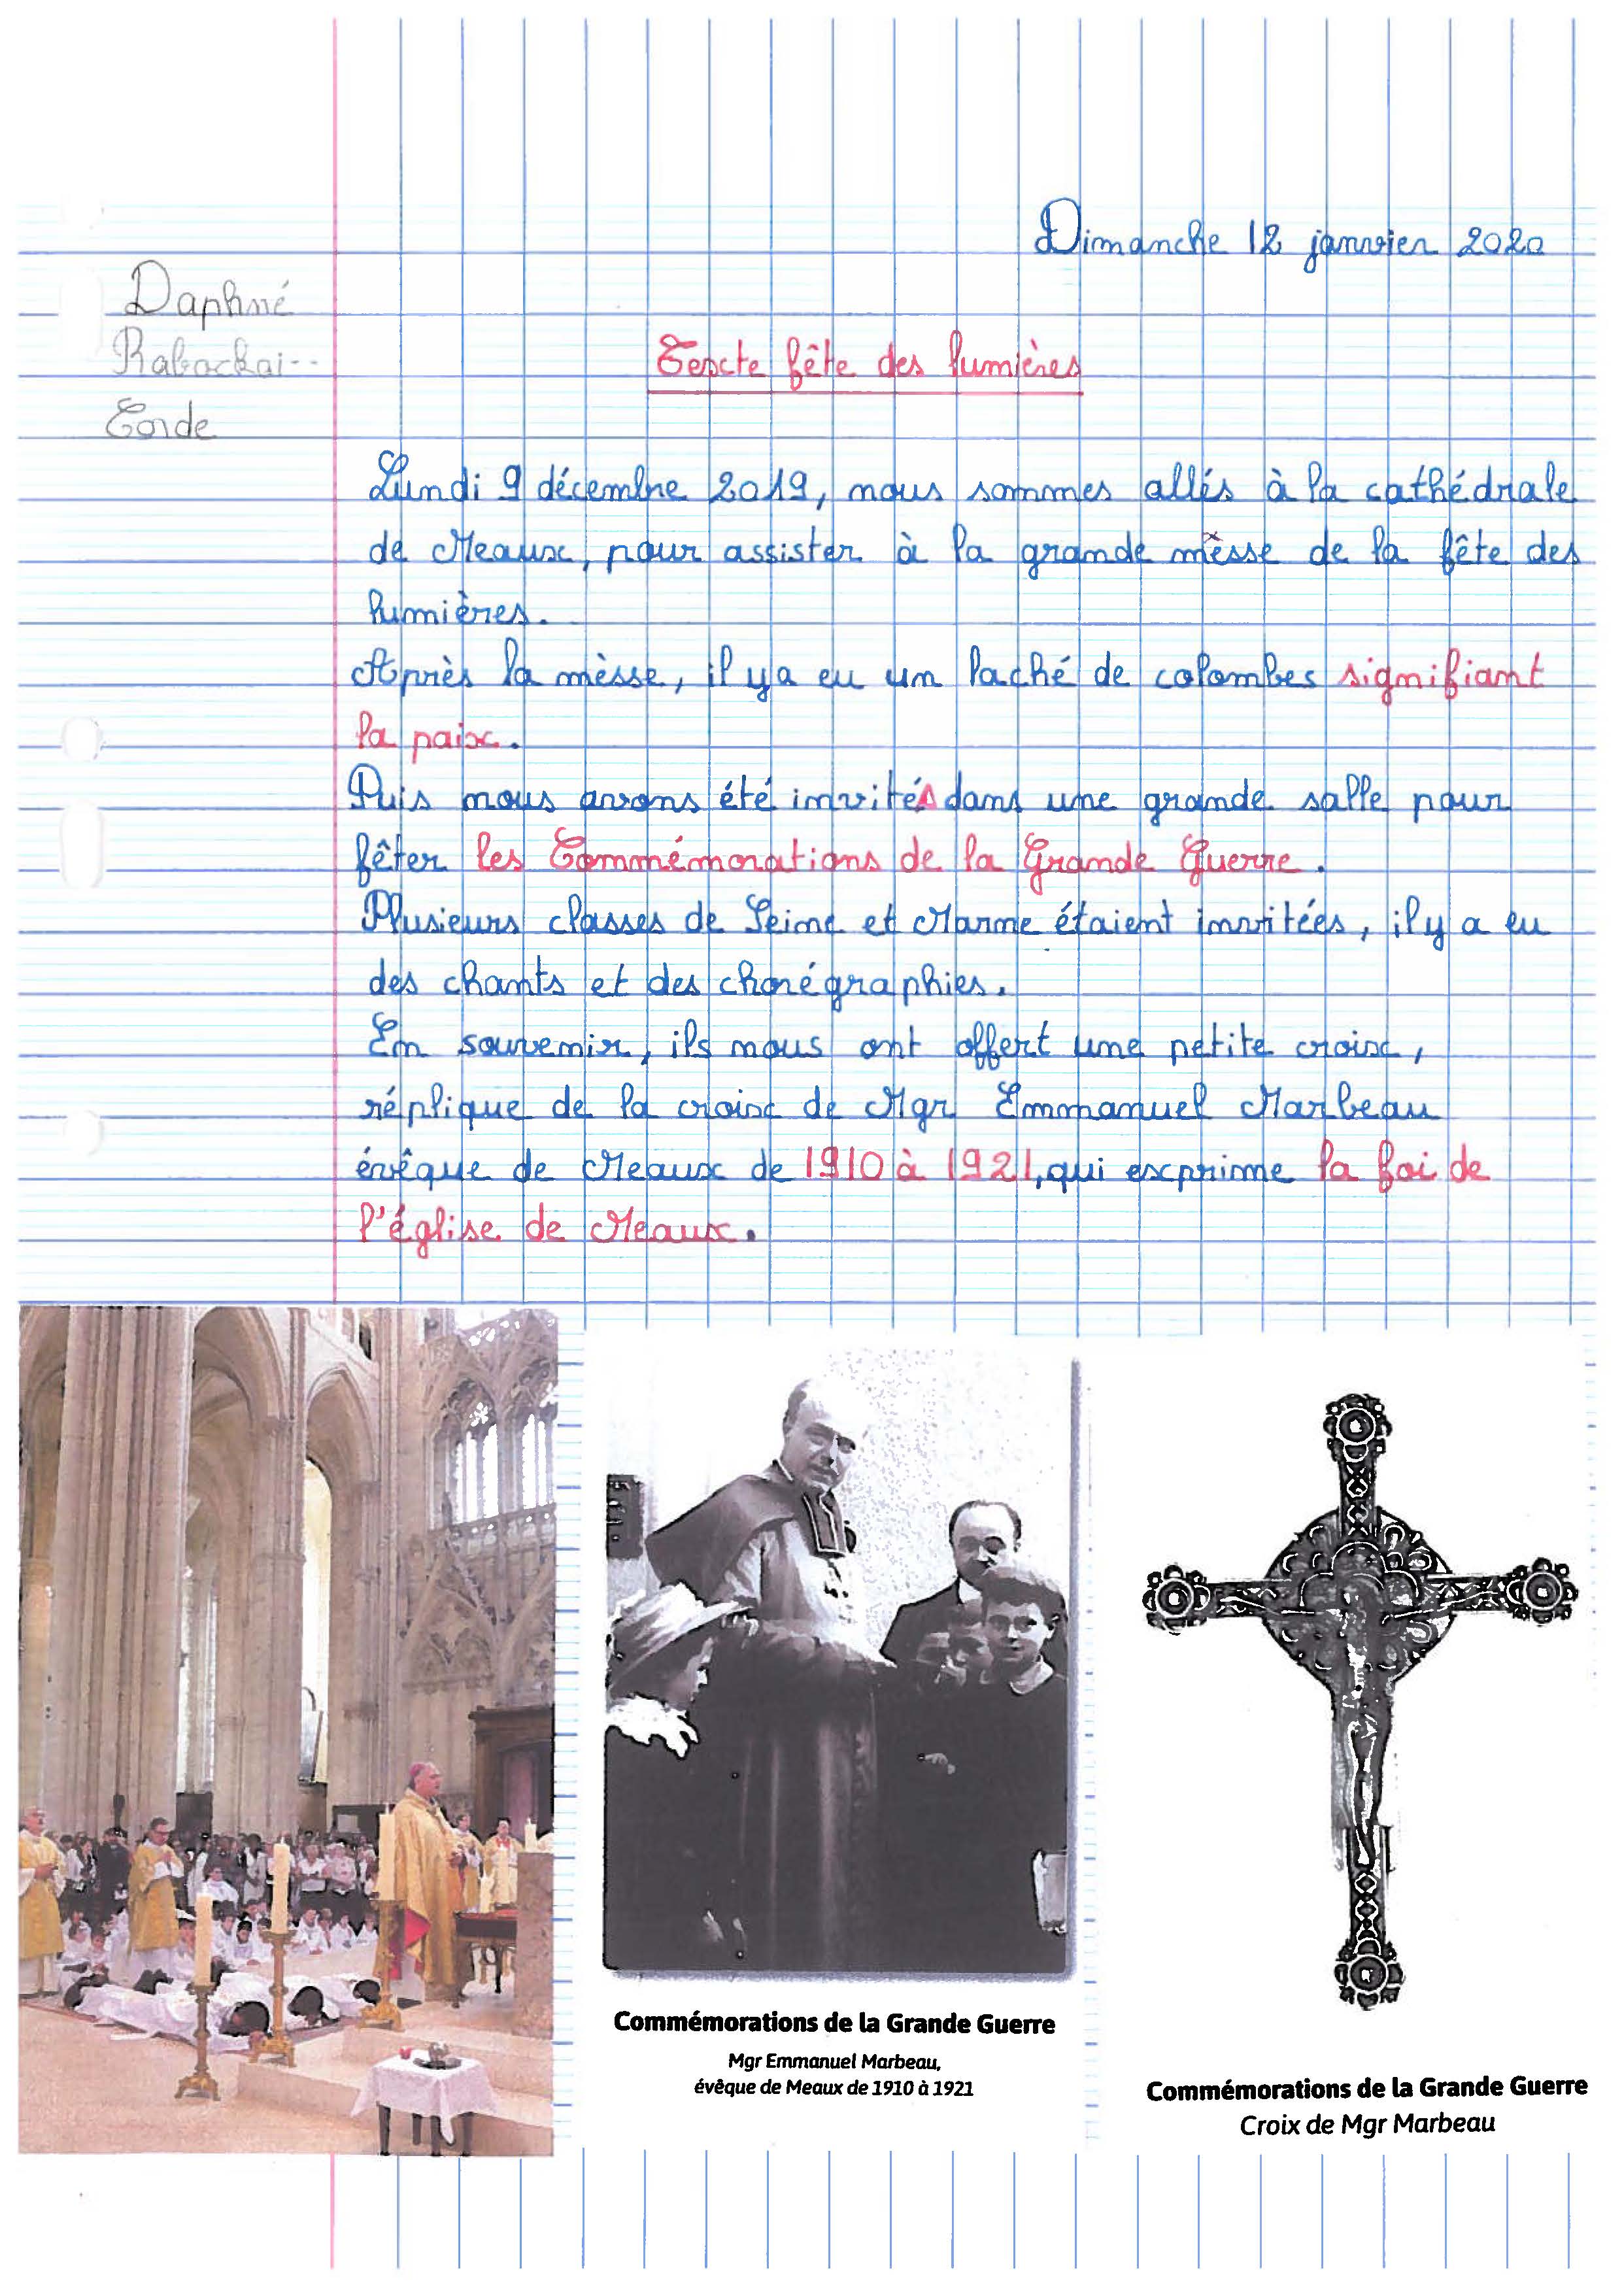 Dimanche 12 janvier 2020
Daphné
Texte fête des lumières
Lundi 9 décembre 2019, nous sommes allés à la cathédrale
de Meaux, pour assister à la grande mèsse de la fête des
lumières.
Après la mèsse, il y a eu un laché de colombes signifiant
la paix.
Puis nous avons été invités dans une grande salle pour
fêter les Commémorations de la Grande Guerre.
Plusieurs classes de Seine et Marne étaient invitées, il y a eu
des chants et des chorégraphies.
En souvenir, ils nous ont offert une petite croix,
réplique de la croix de Mgr Emmanuel Marbeau
évêque de Meaux de 1910 à 1921, qui exprime la foi de
l'église de Meaux.
Commémorations de la Grande Guerre
Mgr Emmanuel Marbeau,
évêque de Meaux de 1910 à 1921
Commémorations de la Grande Guerre
Croix de Mgr Marbeau